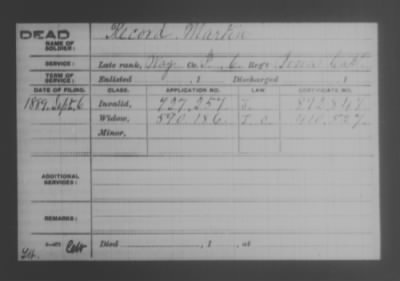 DEAD
NAME OF SOLDIER: Record, Martin
SERVICE: Late rank, Wag Co. F, 6 Reg't Iowa Cav
TERM OF SERVICE: Enlisted , 1 Discharged , 1
DATE OF FILING. CLASS. APPLICATION NO. LAW. CERTIFICATE NO.
1889, Sept. 6 Invalid, 727,257
Widow, 590,186
Minor,
ADDITIONAL SERVICES:
REMARKS:
Died , 1 , at